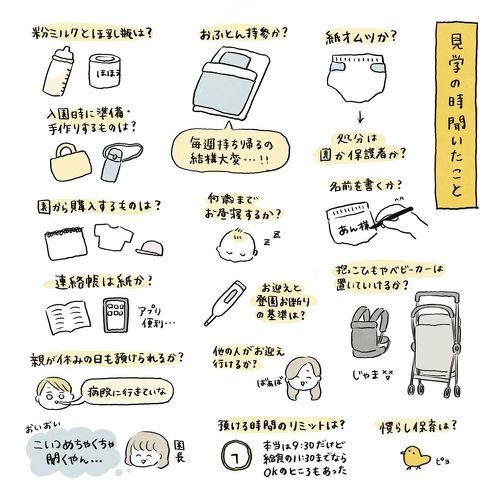 見学の時聞いたこと
粉ミルクとほ乳瓶は?
ほほえ
おふとん持参か?
毎週持ち帰るの
結構大変…!!
紙オムツか?
処分は
園か保護者か?
名前を書くか?
あん様
入園時に準備・
手作りするものは?
園から購入するものは?
何歳まで
お昼寝するか?
z z z
連絡帳は紙か?
アプリ
便利…
お迎えと
登園お断り
の基準は?
抱っこひもやベビーカーは
置いていけるか?
じゃま
親が休みの日も預けられるか?
病院に行きていな
おいおい
こいつめちゃくちゃ
聞くやん…
園長
他の人がお迎え
行けるか?
ばぁば
預ける時間のリミットは?
本当は9:30だけど
給食の11:30までなら
OKのところもあった
慣らし保育は?
ピヨ